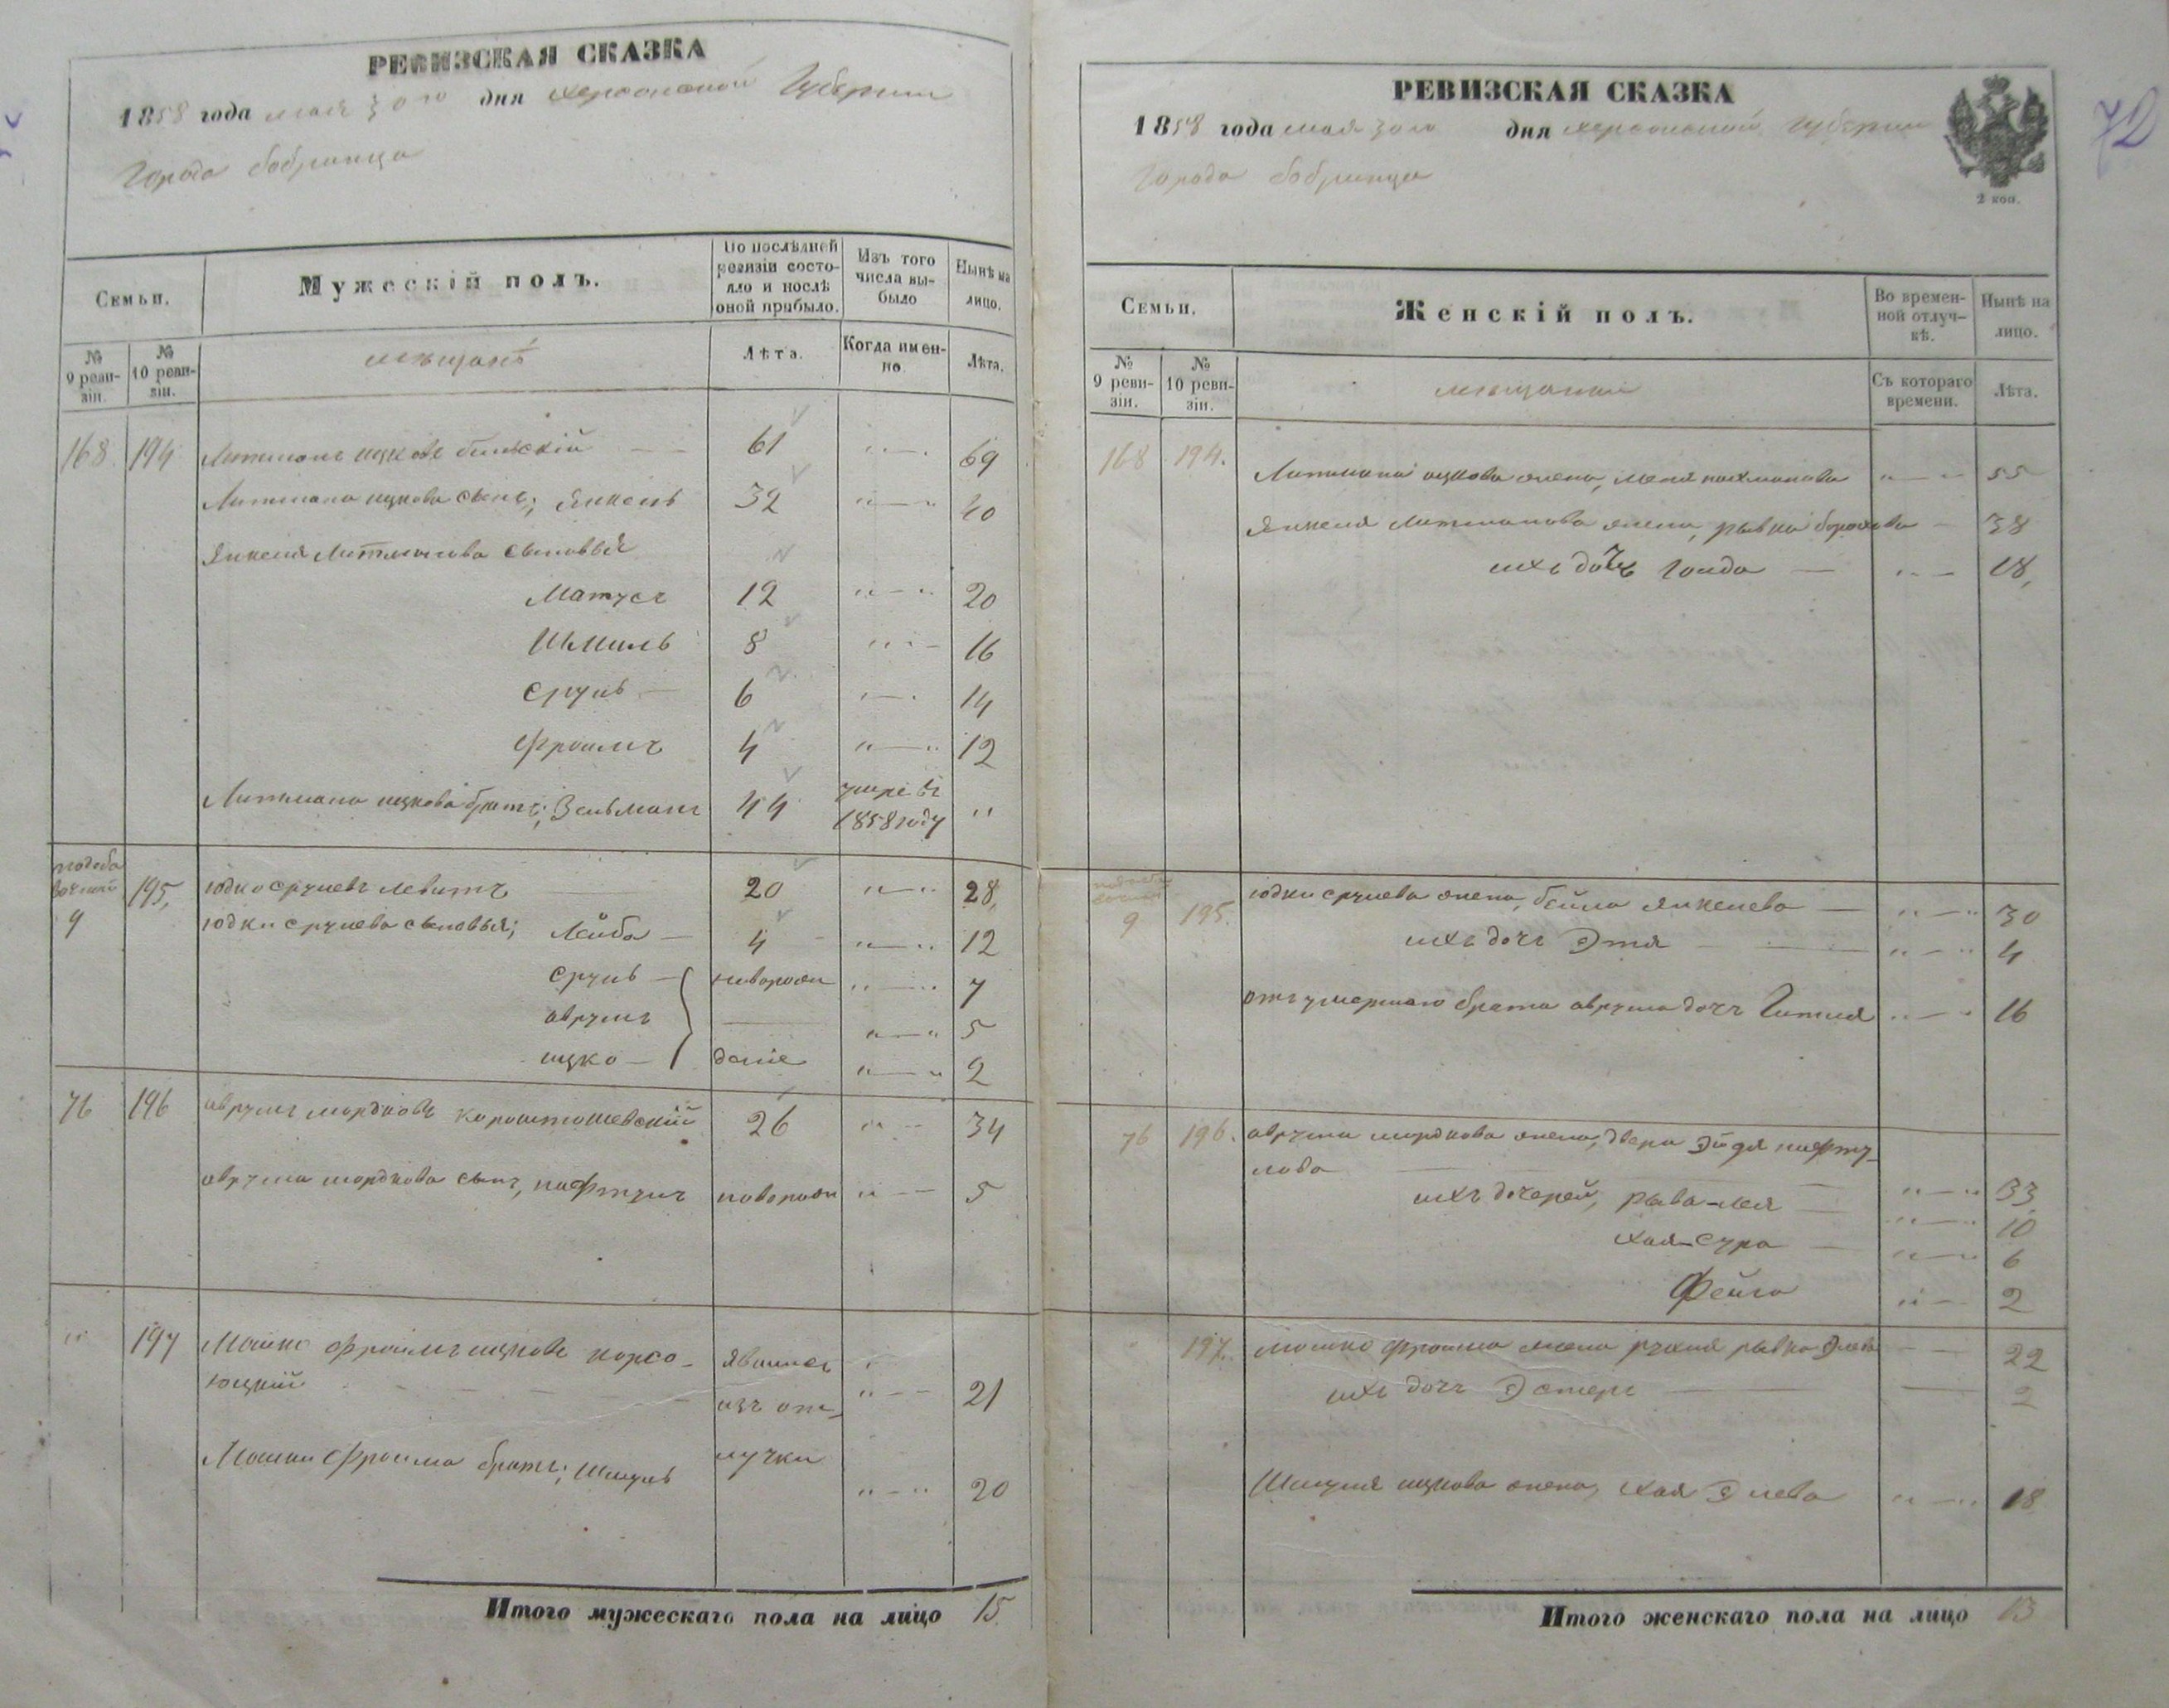 РЕВИЗСКАЯ СКАЗКА
1858 года мая 30го дня Херсонской Губернии
Города Бобринца
Семьи.
Мужескій полъ.
По послѣдней ревизіи состояло и послѣ оной прибыло.
Изъ того числа выбыло
Нынѣ на лицо.
№ 9 ревизіи.
№ 10 ревизіи.
мѣщанъ
Лѣта.
Когда именно.
Лѣта.
168 194 Литманъ ицковъ 61 69
Литмана ицкова сынъ, Янкель 32 40
Янкеля Литманова сыновья
Матусъ 12 20
Шмиль 8 16
Сруль 6 14
Фроимъ 4 12
Литмана ицкова братъ, Зельманъ 44 умре въ 1858 году "
9 195, Юдко срулевъ левитъ 20 28,
Юдки срулева сыновья; Лейба 4 12
Сруль новорож 7
аврумъ 5
ицко деніе 2
76 196 аврумъ мордковъ Коростошевскій 26 34
аврума мордкова сынъ, нафтулъ новорож 5
" 197 Мошко Фроимъ ицковъ явились
изъ от 21
Мошки Фроима братъ; Шмуль лучки 20
Итого мужескаго пола на лицо 15
РЕВИЗСКАЯ СКАЗКА
1858 года мая 30го дня Херсонской Губернии
Города Бобринца
2 коп.
72
Семьи.
Женскій полъ.
Во временной отлучкѣ.
Нынѣ на лицо.
№ 9 ревизіи.
№ 10 ревизіи.
Съ котораго времени.
Лѣта.
168 194. Литмана ицкова жена, нахманова 55
Янкеля Литманова жена, рывка борохова 38
ихъ дочь Голда 18,
9 195. Юдки срулева жена, бейла Янкелева 30
ихъ дочь Этя 4
отъ умершаго брата аврума дочь Гитля 16
76 196. аврума мордкова жена, двера Эйдя нафту-
лова 33
ихъ дочерей, рыва-лея 10
хая-сура 6
Фейга 2
197. Мошко Фроима жена рухля рывка 22
ихъ дочь Эстеръ 2
Шмуля ицкова жена, хая 18
Итого женскаго пола на лицо 13